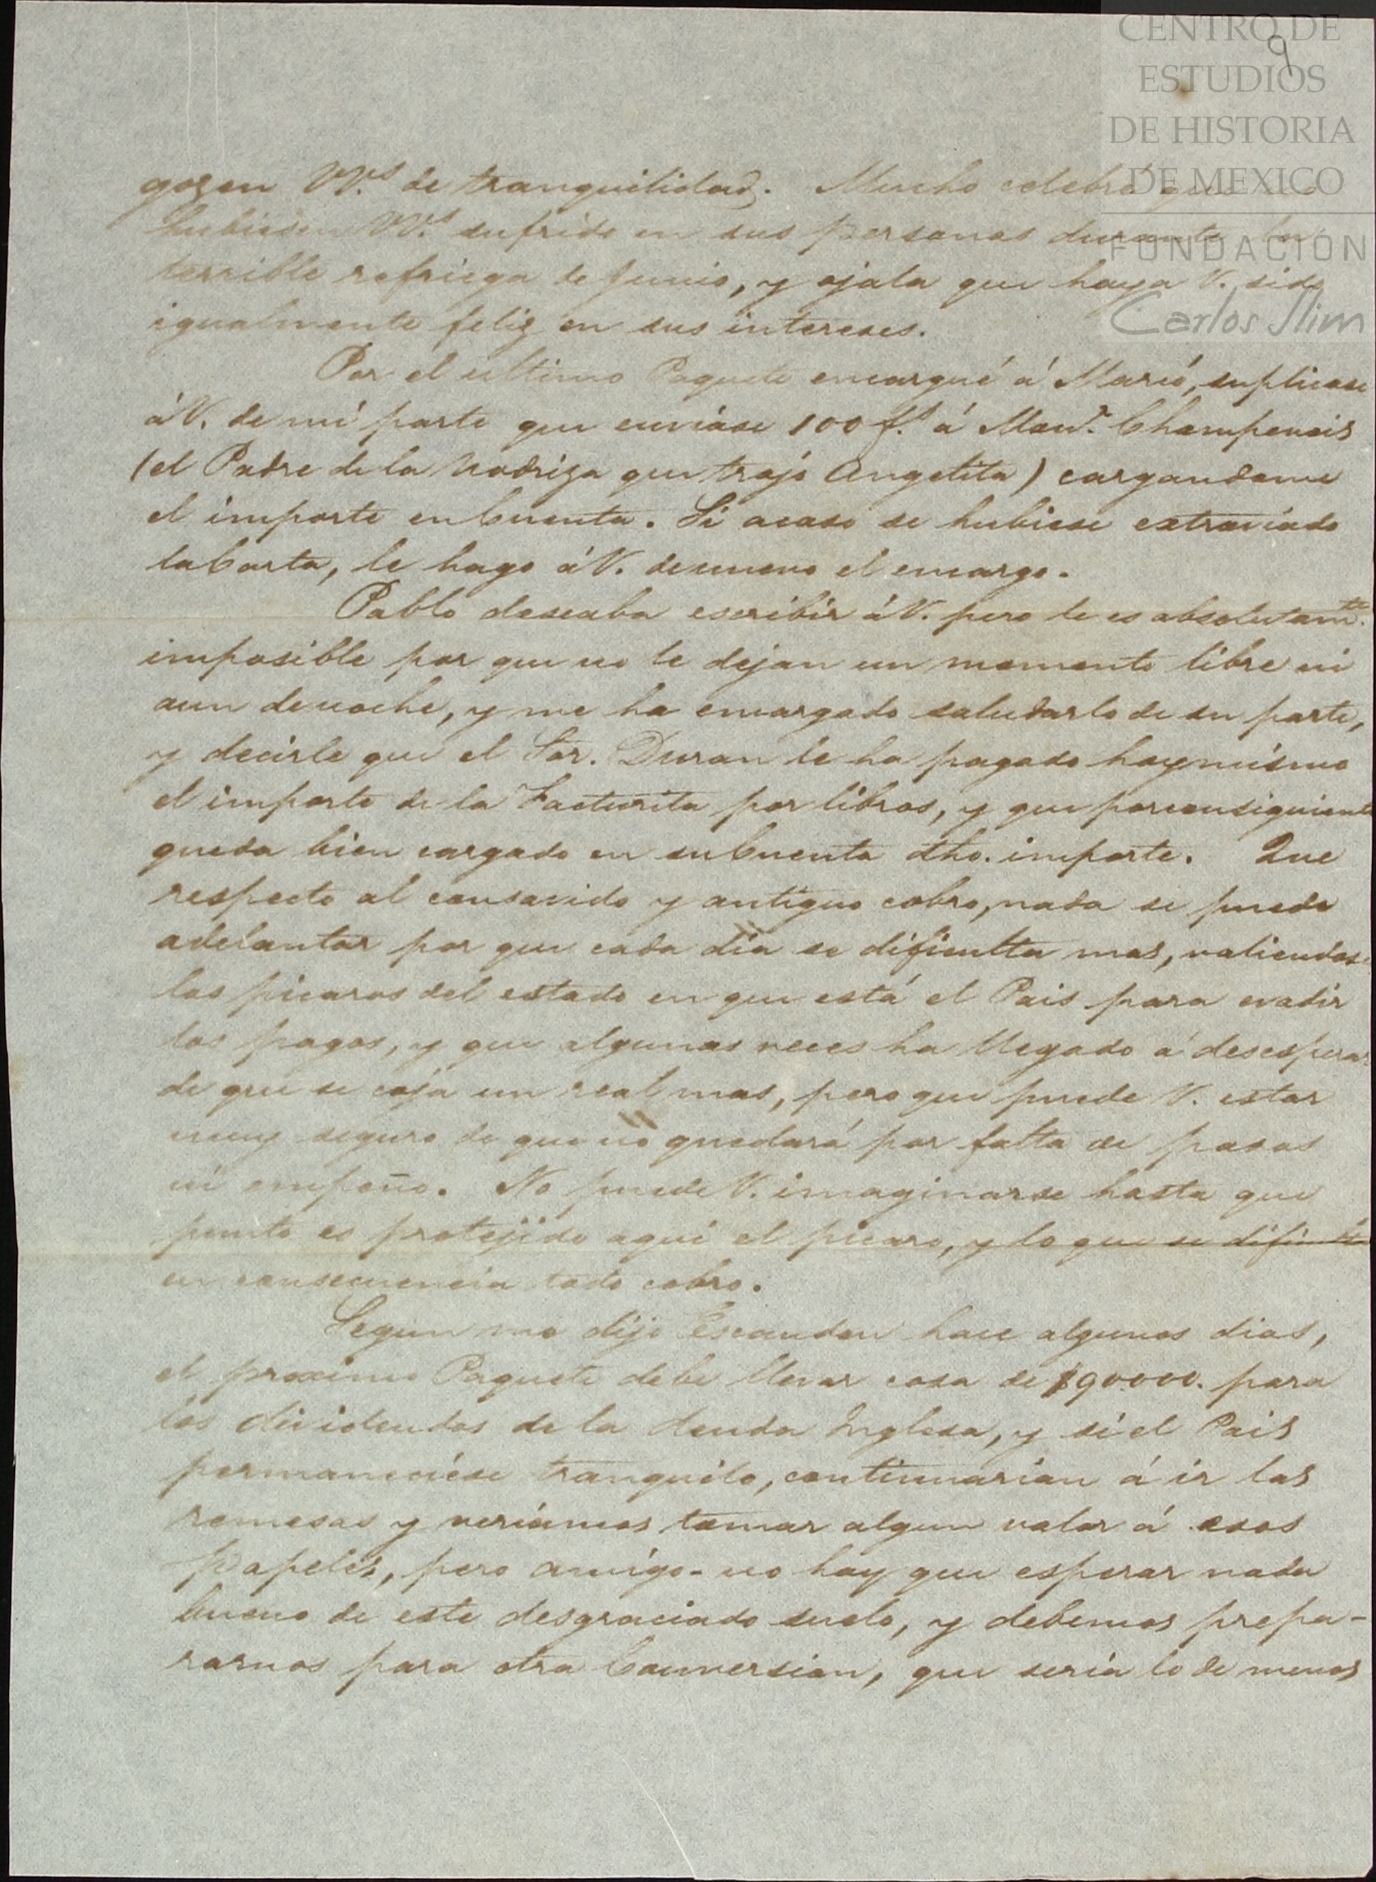 CENTRO DE
ESTUDIOS
DE HISTORIA
DE MEXICO
FUNDACIÓN
Carlos Slim
9
gozen VV.s de tranquilidad. Mucho celebré que no
hubiesen VV.s sufrido en sus personas durante la
terrible refriega de Junio, y ojala que haya V. sido
igualmente feliz en sus intereses.
Por el ultimo Paquete encargué á Mario, suplicase
á V. de mi parte que enviáse 100 f.s á Mau.r Champenois
(el Padre de la Nodriza que trajó Angelita) cargandome
el importe en Cuenta. Si acaso se hubiese extraviado
la Carta, le hago á V. de nuevo el encargo.
Pablo deseaba escribir á V. pero le es absolutam.te
imposible por que no le dejan un momento libre ni
aun de noche, y me ha encargado saludarlo de su parte,
y decirle que el Sor. Duran le ha pagado hoy mismo
el importe de la Facturita por libros, y que por consiguiente
queda bien cargado en su Cuenta dho. importe. Que
respecto al consavido y antiguo cobro, nada se puede
adelantar por que cada dia se dificulta mas, valiendose
los picaros del estado en que está el Pais para evadir
los pagos, y que algunas veces ha llegado á desesperar
de que se coja un real mas, pero que puede V. estar
muy seguro de que no quedará por falta de pasos
ni empeño. No puede V. imaginarse hasta que
punto es protejido aqui el picaro, y lo que se dificulta
en consecuencia todo cobro.
Segun me dijo Escandon hace algunos dias,
el proximo Paquete debe llevar cosa de $90.000. para
los dividendos de la deuda Inglesa, y si el Pais
permaneciése tranquilo, continuarian á ir las
remesas y veriámos tomar algun valor á esos
papeles, pero amigo no hay que esperar nada
bueno de este desgraciado suelo, y debemos prepa-
rarnos para otra Conversion, que sería lo de menos